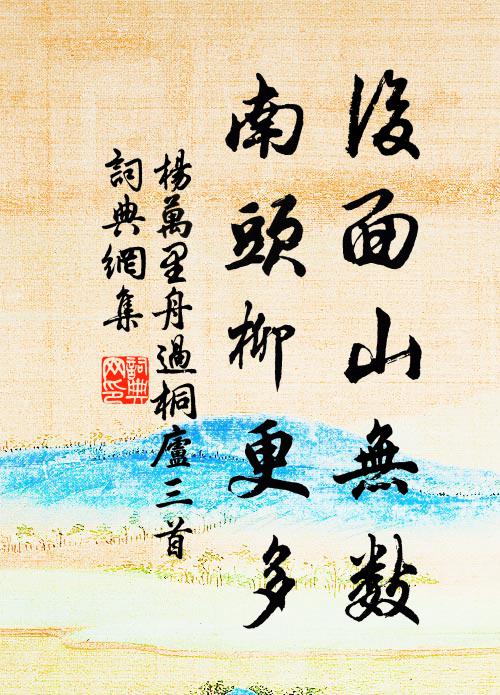 後面山無數
南頭柳更多
楊萬里舟過桐廬三首
詞典網集
詞典
網印